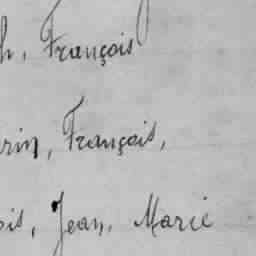 h, François
rin, François,
ois, Jean, Marie